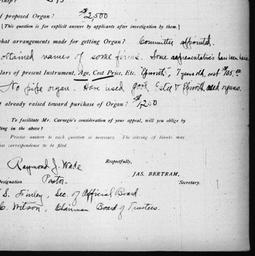 f proposed Organ? $2,500
[This question is for explicit answer by applicants after investigation by them.]
What arrangements made for getting Organ? Committee appointed.
obtained names of some firms. Some representatives have been here
lars of present Instrument, Age, Cost Price, Etc. 7 years old, cost $85.00
No pipe organ. Have used good reed organs.
nt already raised toward purchase of Organ?
To facilitate Mr. Carnegie's consideration of your appeal, will you oblige by
ting in the above?
Precise answers to each question is necessary. The
correspondence to be filed.
Respectfully,
Raymond J. Wade
JAS. BERTRAM,
Designation Pastor.
Secretary.
S. Finley, Sec. of Official Board
C. Wilson, Chairman Board of Trustees.